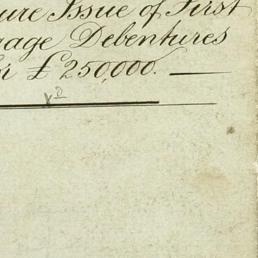 ure Issue of First
gage Debentures
or £250,000.